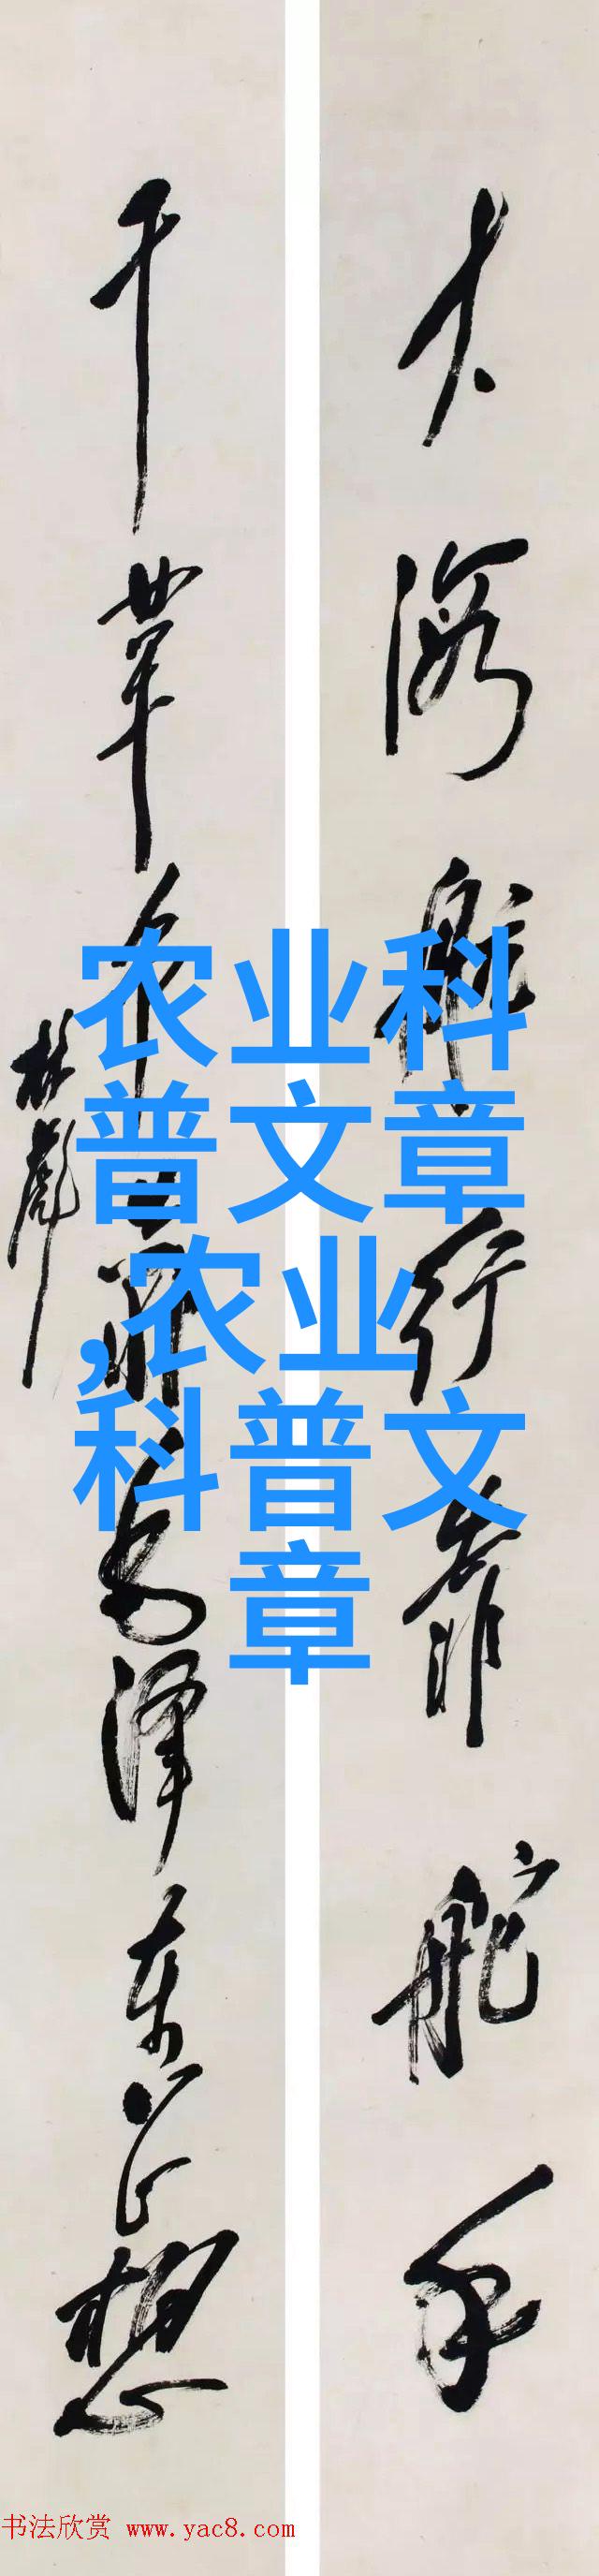 大海航行靠舵手
干革命靠毛泽东思想
林彪
农业科
普文章
,农业
科普文
章
书法欣赏 www.yac8.com